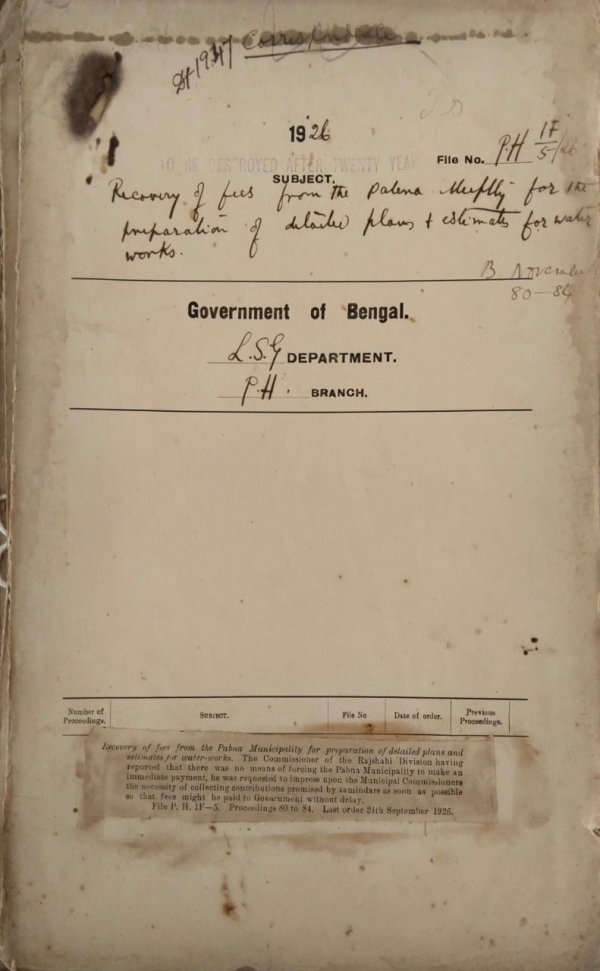 Correspondence
1926
File No. P.H 1F/5/26
TO BE DESTROYED AFTER TWENTY YEAR
SUBJECT.
Recovery of fees from the Pabna for the
preparation of detailed plans & estimates for water
works.
B. November
80-84
Government of Bengal.
L.S.G DEPARTMENT.
P.H. BRANCH.
Number of Proceedings. SUBJECT. File No Date of order. Previous Proceedings.
Recovery of fees from the Pabna Municipality for preparation of detailed plans and
estimates for water-works. The Commissioner of the Rajshahi Division having
reported that there was no means of forcing the Pabna Municipality to make an
immediate payment, he was requested to impress upon the Municipal Commissioners
the necessity of collecting contributions promised by zamindars as soon as possible
so that fees might be paid to Government without delay.
File P. H. 1F—5. Proceedings 80 to 84. Last order 24th September 1926.